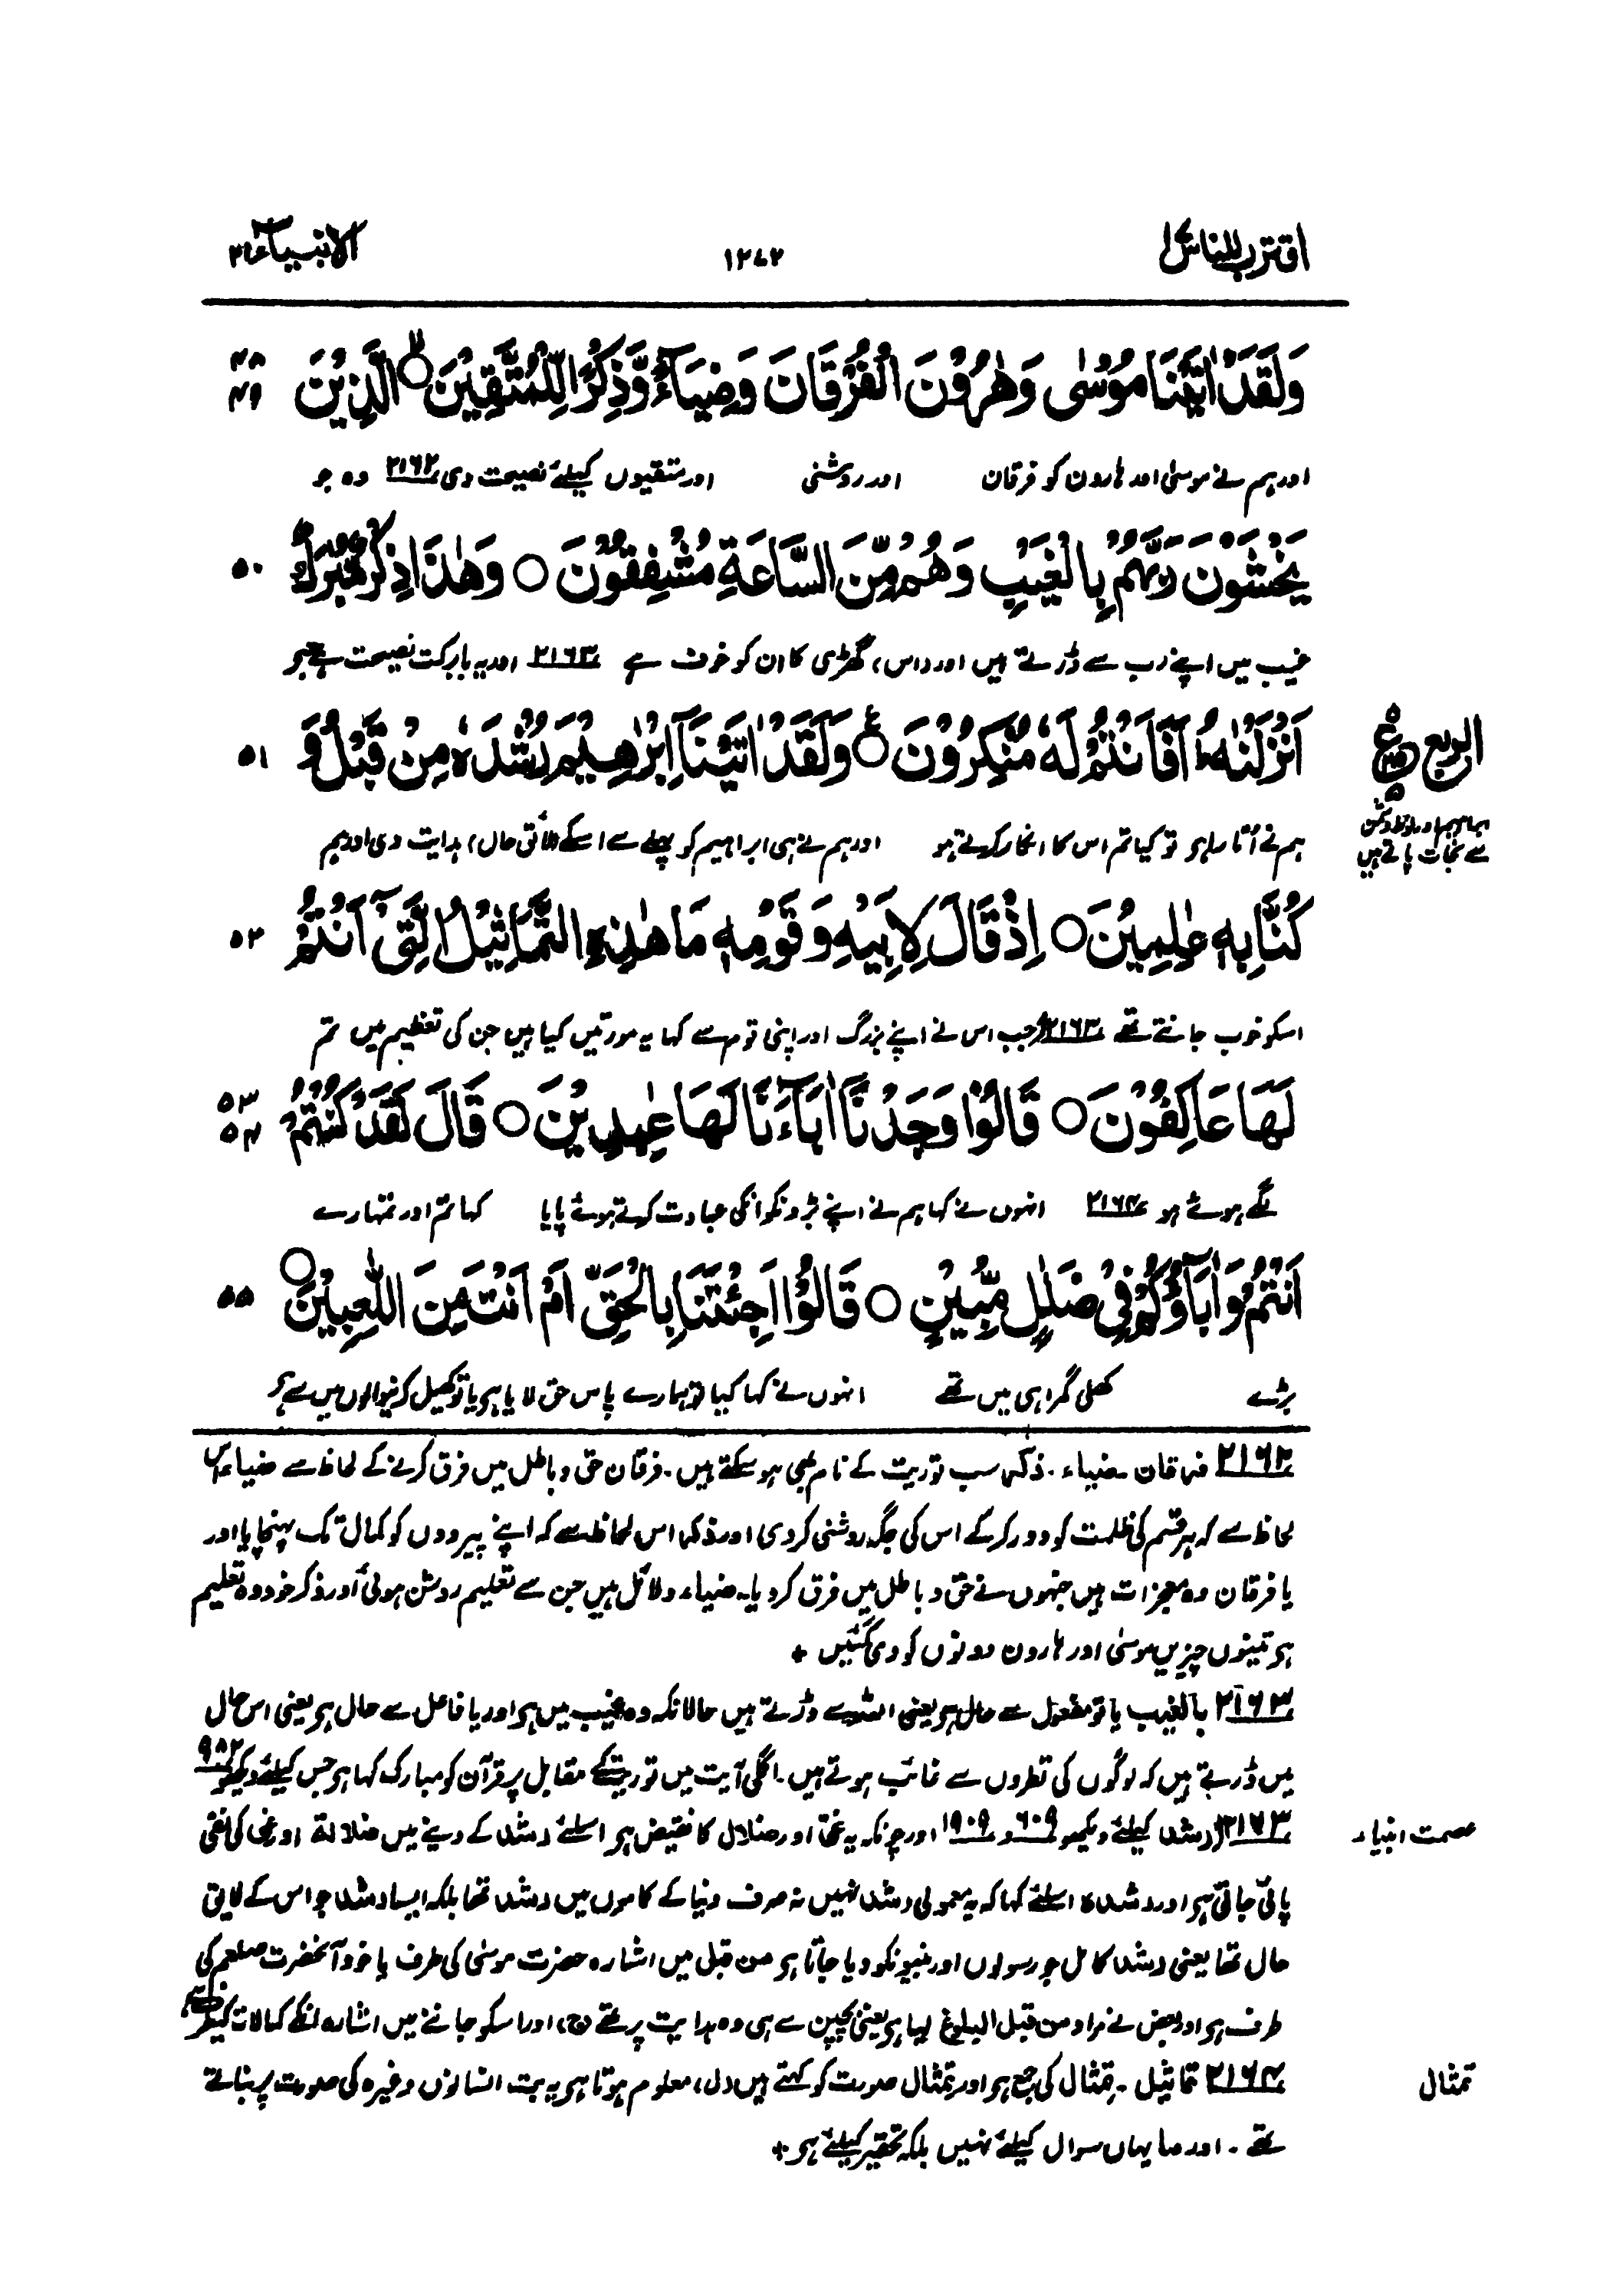 اقترب للناس ۱۷
۱۲۷۲
الانبیاء ۲۱
وَلَقَدْ اٰتَيْنَا مُوْسٰى وَهٰرُوْنَ الْفُرْقَانَ وَضِيَآءً وَّذِكْرًا لِّلْمُتَّقِيْنَ ۙ الَّذِيْنَ
۴۸
۴۹
اور ہم نے موسیٰ اور ہارون کو فرقان اور روشنی اور متقیوں کیلئے نصیحت دی ۲۱۶۲ وہ جو
يَخْشَوْنَ رَبَّهُمْ بِالْغَيْبِ وَهُمْ مِّنَ السَّاعَةِ مُشْفِقُوْنَ ○ وَهٰذَا ذِكْرٌ مُّبٰرَكٌ
۵۰
غیب میں اپنے رب سے ڈرتے ہیں اور (اس) گھڑی کا ان کو خوف ہے ۲۱۶۳ اور یہ بابرکت نصیحت ہے جسے
اَنْزَلْنٰهُ ؕ اَفَاَنْتُمْ لَهٗ مُنْكِرُوْنَ ○ وَلَقَدْ اٰتَيْنَآ اِبْرٰهِيْمَ رُشْدَهٗ مِنْ قَبْلُ وَ
۵۱
الربع
ہم نے اُتارا ہو تو کیا تم اس کا انکار کرتے ہو اور ہم نے ہی ابراہیم کو پہلے سے اسکے (لائق حال) ہدایت دی اور ہم
ابراہیم اور لوط دشمن
سے نجات پاتے ہیں
كُنَّا بِهٖ عٰلِمِيْنَ ○ اِذْ قَالَ لِاَبِيْهِ وَقَوْمِهٖ مَا هٰذِهِ التَّمَاثِيْلُ الَّتِيْٓ اَنْتُمْ
۵۲
اسکو خوب جانتے تھے ۲۱۶۳ جب اس نے اپنے بزرگ اور اپنی قوم سے کہا یہ مورتیں کیا ہیں جن کی تعظیم میں تم
لَهَا عَاكِفُوْنَ ○ قَالُوْا وَجَدْنَآ اٰبَآءَنَا لَهَا عٰبِدِيْنَ ○ قَالَ لَقَدْ كُنْتُمْ
۵۳
۵۴
لگے ہوئے ہو ۲۱۶۴ انہوں نے کہا ہم نے اپنے بڑونکو انکی عبادت کرتے ہوئے پایا کہا تم اور تمہارے
اَنْتُمْ وَاٰبَآؤُكُمْ فِيْ ضَلٰلٍ مُّبِيْنٍ ○ قَالُوْٓا اَجِئْتَنَا بِالْحَقِّ اَمْ اَنْتَ مِنَ اللّٰعِبِيْنَ ○
۵۵
بڑے کھلی گمراہی میں تھے انہوں نے کہا کیا تو ہمارے پاس حق لایا ہو یا تو کھیل کرنیوالوں میں سے ہو
۲۱۶۲ فرقان ۔ ضیاء ۔ ذکر سب توریت کے نام بھی ہو سکتے ہیں ۔ فرقان حق و باطل میں فرق کرنے کے لحاظ سے ضیاء اس
لحاظ سے کہ ہر قسم کی ظلمت کو دور کر کے اس کی جگہ روشنی کر دی اور ذکر اس لحاظ سے کہ اپنے پیرووں کو کمال تک پہنچایا اور
یا فرقان وہ معجزات ہیں جنہوں نے حق و باطل میں فرق کر دیا ۔ ضیاء دلائل ہیں جن سے تعلیم روشن ہوئی اور ذکر خود وہ تعلیم
ہو تینوں چیزیں موسیٰ اور ہارون دونوں کو دی گئیں +
۲۱۶۳ بالغیب یا تو مفعول سے حال ہو یعنی اللہ سے ڈرتے ہیں حالانکہ وہ غیب میں ہو اور یا فاعل سے حال ہو یعنی اس حال
میں ڈرتے ہیں کہ لوگوں کی نظروں سے غائب ہوتے ہیں ۔ اگلی آیت میں توریت کے مقابل پر قرآن کو مبارک کہا ہو جس کیلئے دیکھو ۹۸۲
۲۱۶۳ (رشد کیلئے دیکھو ۶۰۹ و ۱۹۰۹ اور چونکہ یہ غیّ اور ضلال کا نقیض ہو اسلئے رشد کے دینے میں ضلالۃ اور غی کی نفی
عصمت انبیاء
پائی جاتی ہو اور رشدہ اسلئے کہا کہ یہ معمولی رشد نہیں نہ صرف دنیا کے کاموں میں رشد تھا بلکہ ایسا رشد جو اس کے لائق
حال تھا یعنی رشد کامل جو رسولوں اور نبیونکو دیا جاتا ہو من قبل میں اشارہ حضرت موسیٰ کی طرف یا خود آنحضرت صلعم کی
طرف ہو اور بعض نے مراد من قبل البلوغ لیا ہو یعنی بچپن سے ہی وہ ہدایت پر تھے (ج) اور اسکو جاننے میں اشارہ انکے کمالات کیطرف ہے
۲۱۶۴ تماثیل ۔ تمثال کی جمع ہو اور تمثال صورت کو کہتے ہیں (ل) معلوم ہوتا ہو یہ بت انسانوں وغیرہ کی صورت پر بناتے
تمثال
تھے ۔ اور ما یہاں سوال کیلئے نہیں بلکہ تحقیر کیلئے ہو +